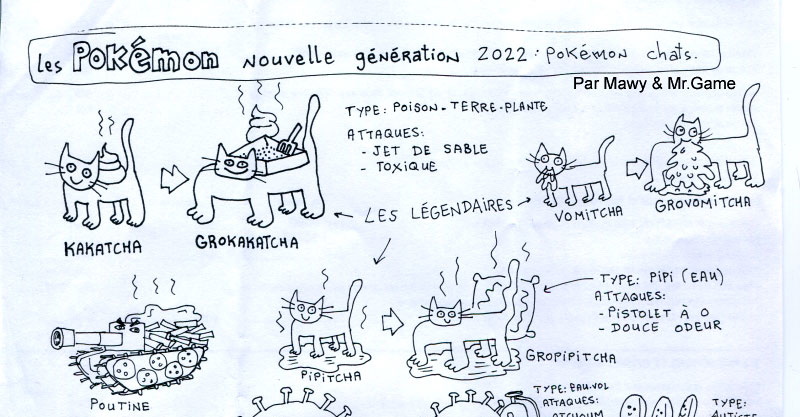 Les Pokémon nouvelle génération 2022 : pokémon chats.
Par Mawy & Mr.Game
TYPE: POISON-TERRE-PLANTE
ATTAQUES:
- JET DE SABLE
- TOXIQUE
KAKATCHA
GROKAKATCHA
LES LÉGENDAIRES
VOMITCHA
GROVOMITCHA
TYPE: PIPI (EAU)
ATTAQUES:
- PISTOLET À O
- DOUCE ODEUR
PIPITCHA
GROPIPITCHA
POUTINE
TYPE: EAU-VOL
ATTAQUES:
TYPE: